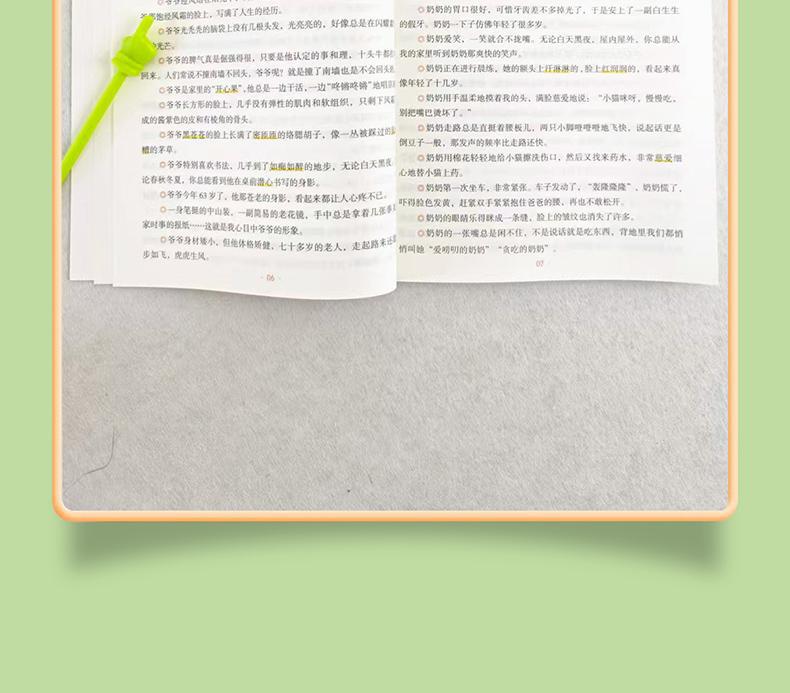 那饱经风霜的脸上，写满了人生的经历。
爷爷光秃秃的脑袋上没有几根头发，光亮亮的，好像总是在闪耀
光芒。
爷爷的脾气真是倔强得很，只要是他认定的事和理，十头牛都
回来。人们常说不撞南墙不回头，爷爷呢？就是撞了南墙也是不会回头
爷爷是家里的“开心果”，他总是一边干活，一边“咚锵咚锵”地唱
爷爷长方形的脸上，几乎没有弹性的肌肉和软组织，只剩下风霜
成的酱紫色的皮和有棱角的骨头。
爷爷黑苍苍的脸上长满了密匝匝的络腮胡子，像一丛被踩过的
糟的茅草。
爷爷特别喜欢书法，几乎到了如痴如醉的地步，无论白天黑夜
论春秋冬夏，你总能看到他在桌前潜心书写的身影。
爷爷今年63岁了，他那苍老的身影，看起来都让人心疼不已。
一身笔挺的中山装、一副简易的老花镜，手中总是拿着几张
家时事的报纸……这就是我心目中爷爷的形象。
爷爷身材矮小，但他体格矫健，七十多岁的老人，走起路来还
步如飞，虎虎生风。
06
奶奶的胃口很好，可惜牙齿差不多掉光了，于是安上了一副白生生
的假牙。奶奶一下子仿佛年轻了很多岁。
奶奶爱笑，一笑就合不拢嘴。无论白天黑夜，屋内屋外，你总能从
我的家里听到奶奶那爽快的笑声。
奶奶正在进行晨练，她的额头上汗淋淋的，脸上红润润的，看起来真
像年轻了十几岁。
奶奶用手温柔地摸着我的头，满脸慈爱地说：“小猫咪呀，慢慢吃，
别把嘴巴烫坏了。”
奶奶走路总是直挺着腰板儿，两只小脚噔噔噔地飞快，说起话更是
倒豆子一般，那发声的频率比走路还快。
奶奶用棉花轻轻地给小猫擦洗伤口，然后又找来药水，非常慈爱细
心地替小猫上药。
奶奶第一次坐车，非常紧张。车子发动了，“轰隆隆隆”，奶奶慌了，
吓得脸色发黄，赶紧双手紧紧抱住爸爸的腰，再也不敢松开。
奶奶的眼睛乐得眯成一条缝，脸上的皱纹也消失了许多。
奶奶的一张嘴总是闲不住，不是说话就是吃东西，背地里我们都悄
悄叫她“爱唠叨的奶奶”“贪吃的奶奶”。
07